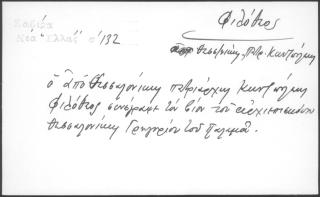 Καβίρα
Νέα "Ἑλλάς" σ' 132
Φιλόθεος
Θεσσ/νίκης, Πατρ. Κων/πόλεως
ὁ ἀπὸ Θεσσαλονίκης πατριάρχης Κων/πόλεως
Φιλόθεος συνέγραψε τὸν βίον τοῦ ἀρχιεπισκόπου
Θεσσαλονίκης Γρηγορίου τοῦ Παλαμᾶ.